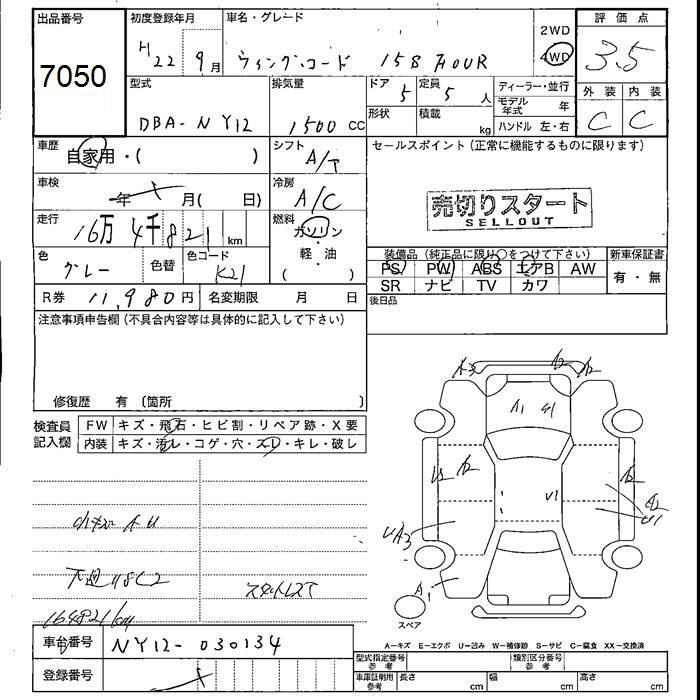 出品番号
7050
初度登録年月
H 22 9月
車名・グレード
ウィングロード 15B FOUR
2WD
4WD
評価点
3.5
型式
DBA-NY12
排気量
1500 CC
ドア
5
定員
5 人
形状
積載
kg
ディーラー・並行
モデル年式 年
ハンドル 左・右
外装
C
内装
C
車歴
自家用・( )
シフト
A/T
セールスポイント (正常に機能するものに限ります)
売切りスタート
SELLOUT
車検
年 月( 日)
冷房
A/C
走行
16万4千821 km
燃料
ガソリン
・
軽・油
( )
色
グレー
色替
色コード
K21
装備品 (純正品に限り○をつけて下さい)
PS PW ABS エアB AW
SR ナビ TV カワ
新車保証書
有・無
R券 11,980円
名変期限 月 日
後日品
注意事項申告欄 (不具合内容等は具体的に記入して下さい)
修復歴 有 (箇所 )
検査員記入欄
FW キズ・飛石・ヒビ割・リペア跡・X要
内装 キズ・汚レ・コゲ・穴・スレ・キレ・破し
A3 A2 A2
A1 G1
U2 A2 A2
U1
A2
U1
UA3
A1
スペア
小キズ A U
下廻り S C2
スタットレスT
164821km
車台番号
NY12-030134
登録番号
A-キズ E-エクボ U-凹み W-補修跡 S-サビ C-腐食 XX-交換済
型式指定番号
参考
類別区分番号
参考
車庫証明用
参考
長さ cm
幅 cm
高さ cm